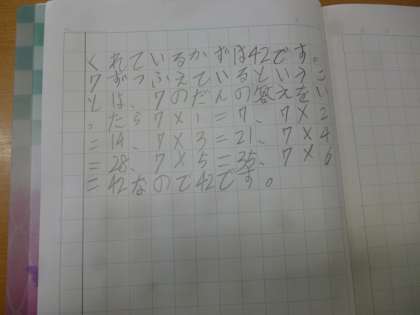 くれているかずは42です。
7ずつふえているというこ
とは、7のだんの答えをい
ったら7×1=7、7×2
=14、7×3=21、7×4
=28、7×5=35、7×6
=42なので42です。